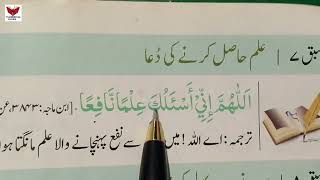 سبق ۷ | علم حاصل کرنے کی دُعا
اَللّٰهُمَّ اِنِّيْٓ أَسْئَلُكَ عِلْمًا نَّافِعًا. [ابن ماجہ: ۳۸۴۳، عن
ترجمہ: اے اللہ! میں سے نفع پہنچانے والا علم مانگتا ہوں